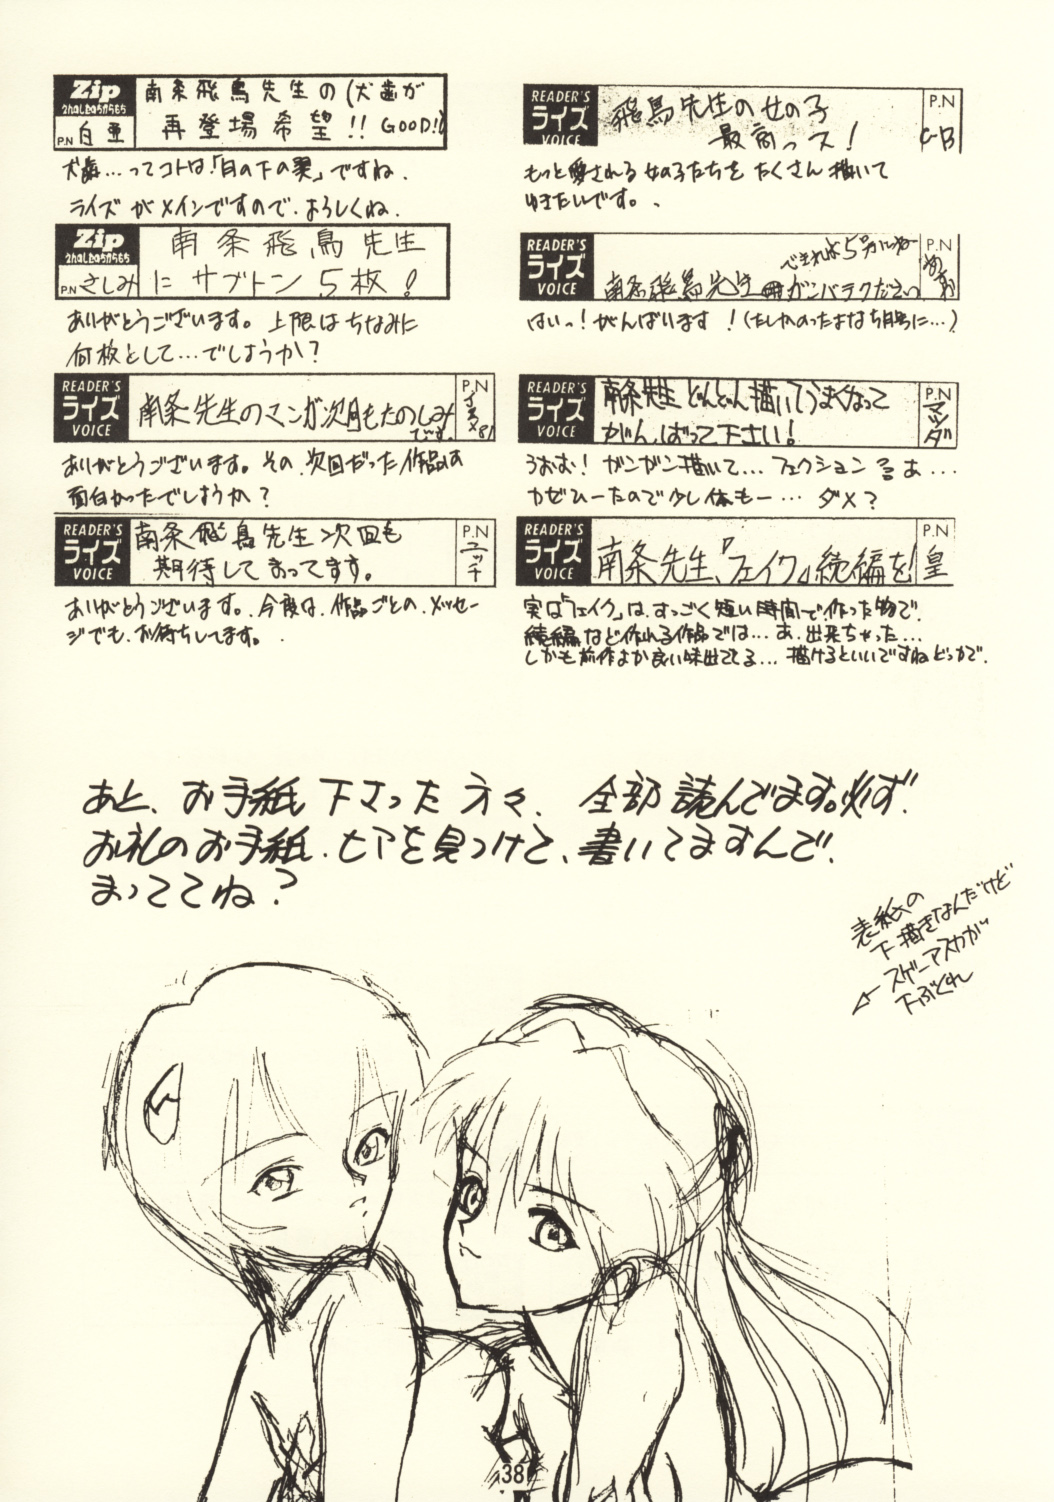 Zip
P.N 白亜
南条飛鳥先生の(犬歯が
再登場希望!! GOOD!!
犬歯…ってコトは「月の下の翼」ですね.
ライズがメインですので.よろしくね.
Zip
P.N さしみ
南条飛鳥先生
にザブトン5枚!
ありがとうございます。上限はちなみに
何枚として…でしょうか?
READER'S
ライズ
VOICE
南条先生のマンガ次回もたのしみ
です.
P.N
ありがとうございます。その.次回だった作品は
面白かったでしょうか?
READER'S
ライズ
VOICE
南条飛鳥先生>次回も
期待してまってます。
P.N
ニッチ
ありがとうございます.今度は.作品ごとの.メッセー
ジでも.お待ちしてます。
READER'S
ライズ
VOICE
飛鳥先生の女の子
最高っス!
P.N
C-B
もっと愛される女の子たちをたくさん描いて
ゆきたいです。
READER'S
ライズ
VOICE
できれば5月号に
南条飛鳥先生 ガンバテクださいっ
P.N
はいっ!がんばいます!(たしかのったよなち月号に…)
READER'S
ライズ
VOICE
南条先生どんどん描いてうまくなって
がんばって下さい!
P.N
マツダ
うおお!ガンガン描いて…フェクション
カゼひーたので少し休もー…ダメ?
READER'S
ライズ
VOICE
南条先生、『フェイク』続編を!
P.N
皇
実は「フェイク」は.すっごく短い時間で作った物で.
続編など作れる作品では…あ.出来ちゃった…
しかも前作より良い味出てる…描けるといいですねどっかで.
あと、お手紙下さった方々、全部読んでます。必ず.
お礼のお手紙.ヒマを見つけて、書いてますんで.
まっててね?
表紙の
下描きなんだけど
スゲーアスカが
下ぶくれ
38